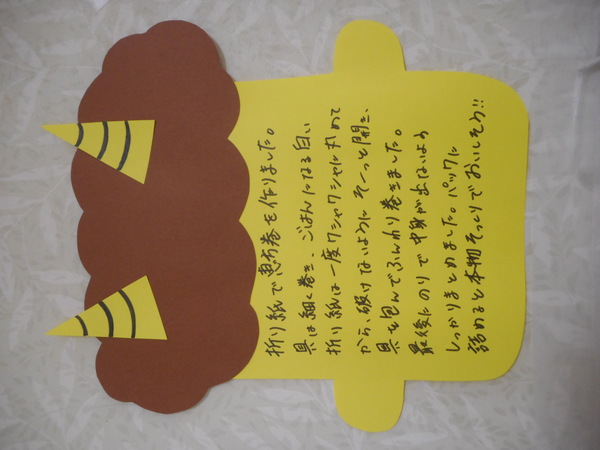 折り紙で恵方巻を作りました。
具は細く巻き、ごはんになる白い
折り紙は一度クシャクシャに丸めて
から、破けないようにそーっと開き、
具を包んでふんわり巻きました。
最後にのりで中身が出ないよう
しっかりまとめました。パックに
詰めると本物そっくりでおいしそう!!